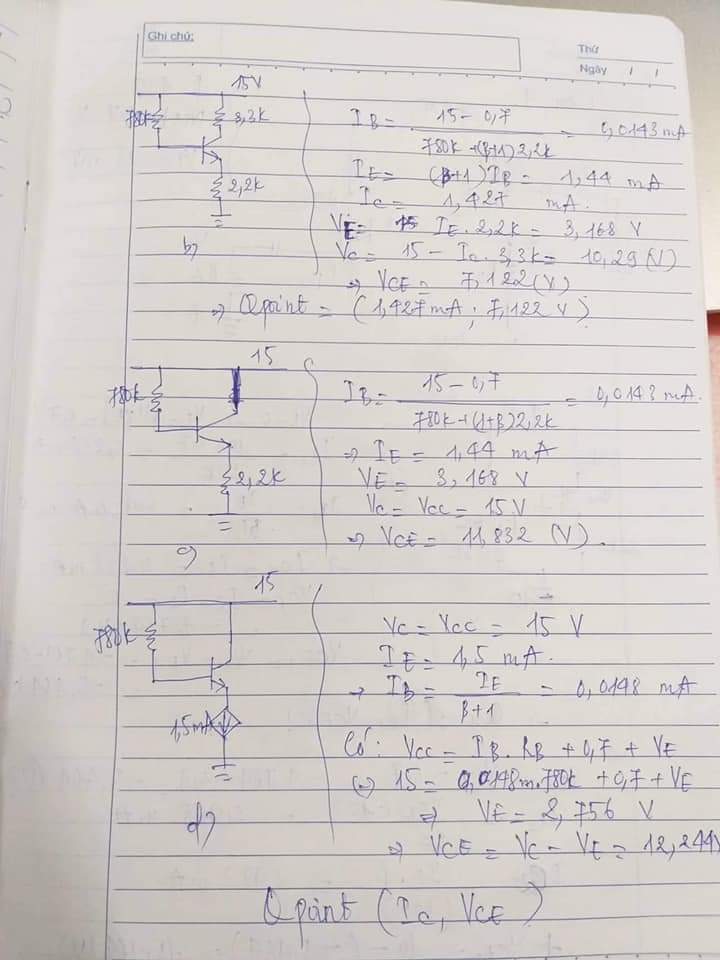 Ghi chú:
Thứ
Ngày / /
15V
780k
3,3k
2,2k
b)
IB = 15 - 0,7 / 780k + (β+1) 2,2k = 0,0143 mA
IE = (β+1) IB = 1,44 mA
IC = 1,427 mA.
VE = IE. 2,2k = 3,168 V
VC = 15 - IC. 3,3k = 10,29 (V)
⇒ VCE = 7,122 (V)
⇒ Qpoint = (1,427 mA ; 7,122 V)
15
780k
2,2k
c)
IB = 15 - 0,7 / 780k + (1+β) 2,2k = 0,0143 mA.
⇒ IE = 1,44 mA
VE = 3,168 V
VC = VCC = 15 V
⇒ VCE = 11,832 (V).
15
780k
1,5mA
d)
VC = VCC = 15 V
IE = 1,5 mA.
→ IB = IE / β+1 = 0,0148 mA
Có: VCC = IB. RB + 0,7 + VE
(=) 15 = 0,0148m.780k + 0,7 + VE
⇒ VE = 2,756 V
⇒ VCE = VC - VE = 12,244V
Qpoint (IC, VCE)